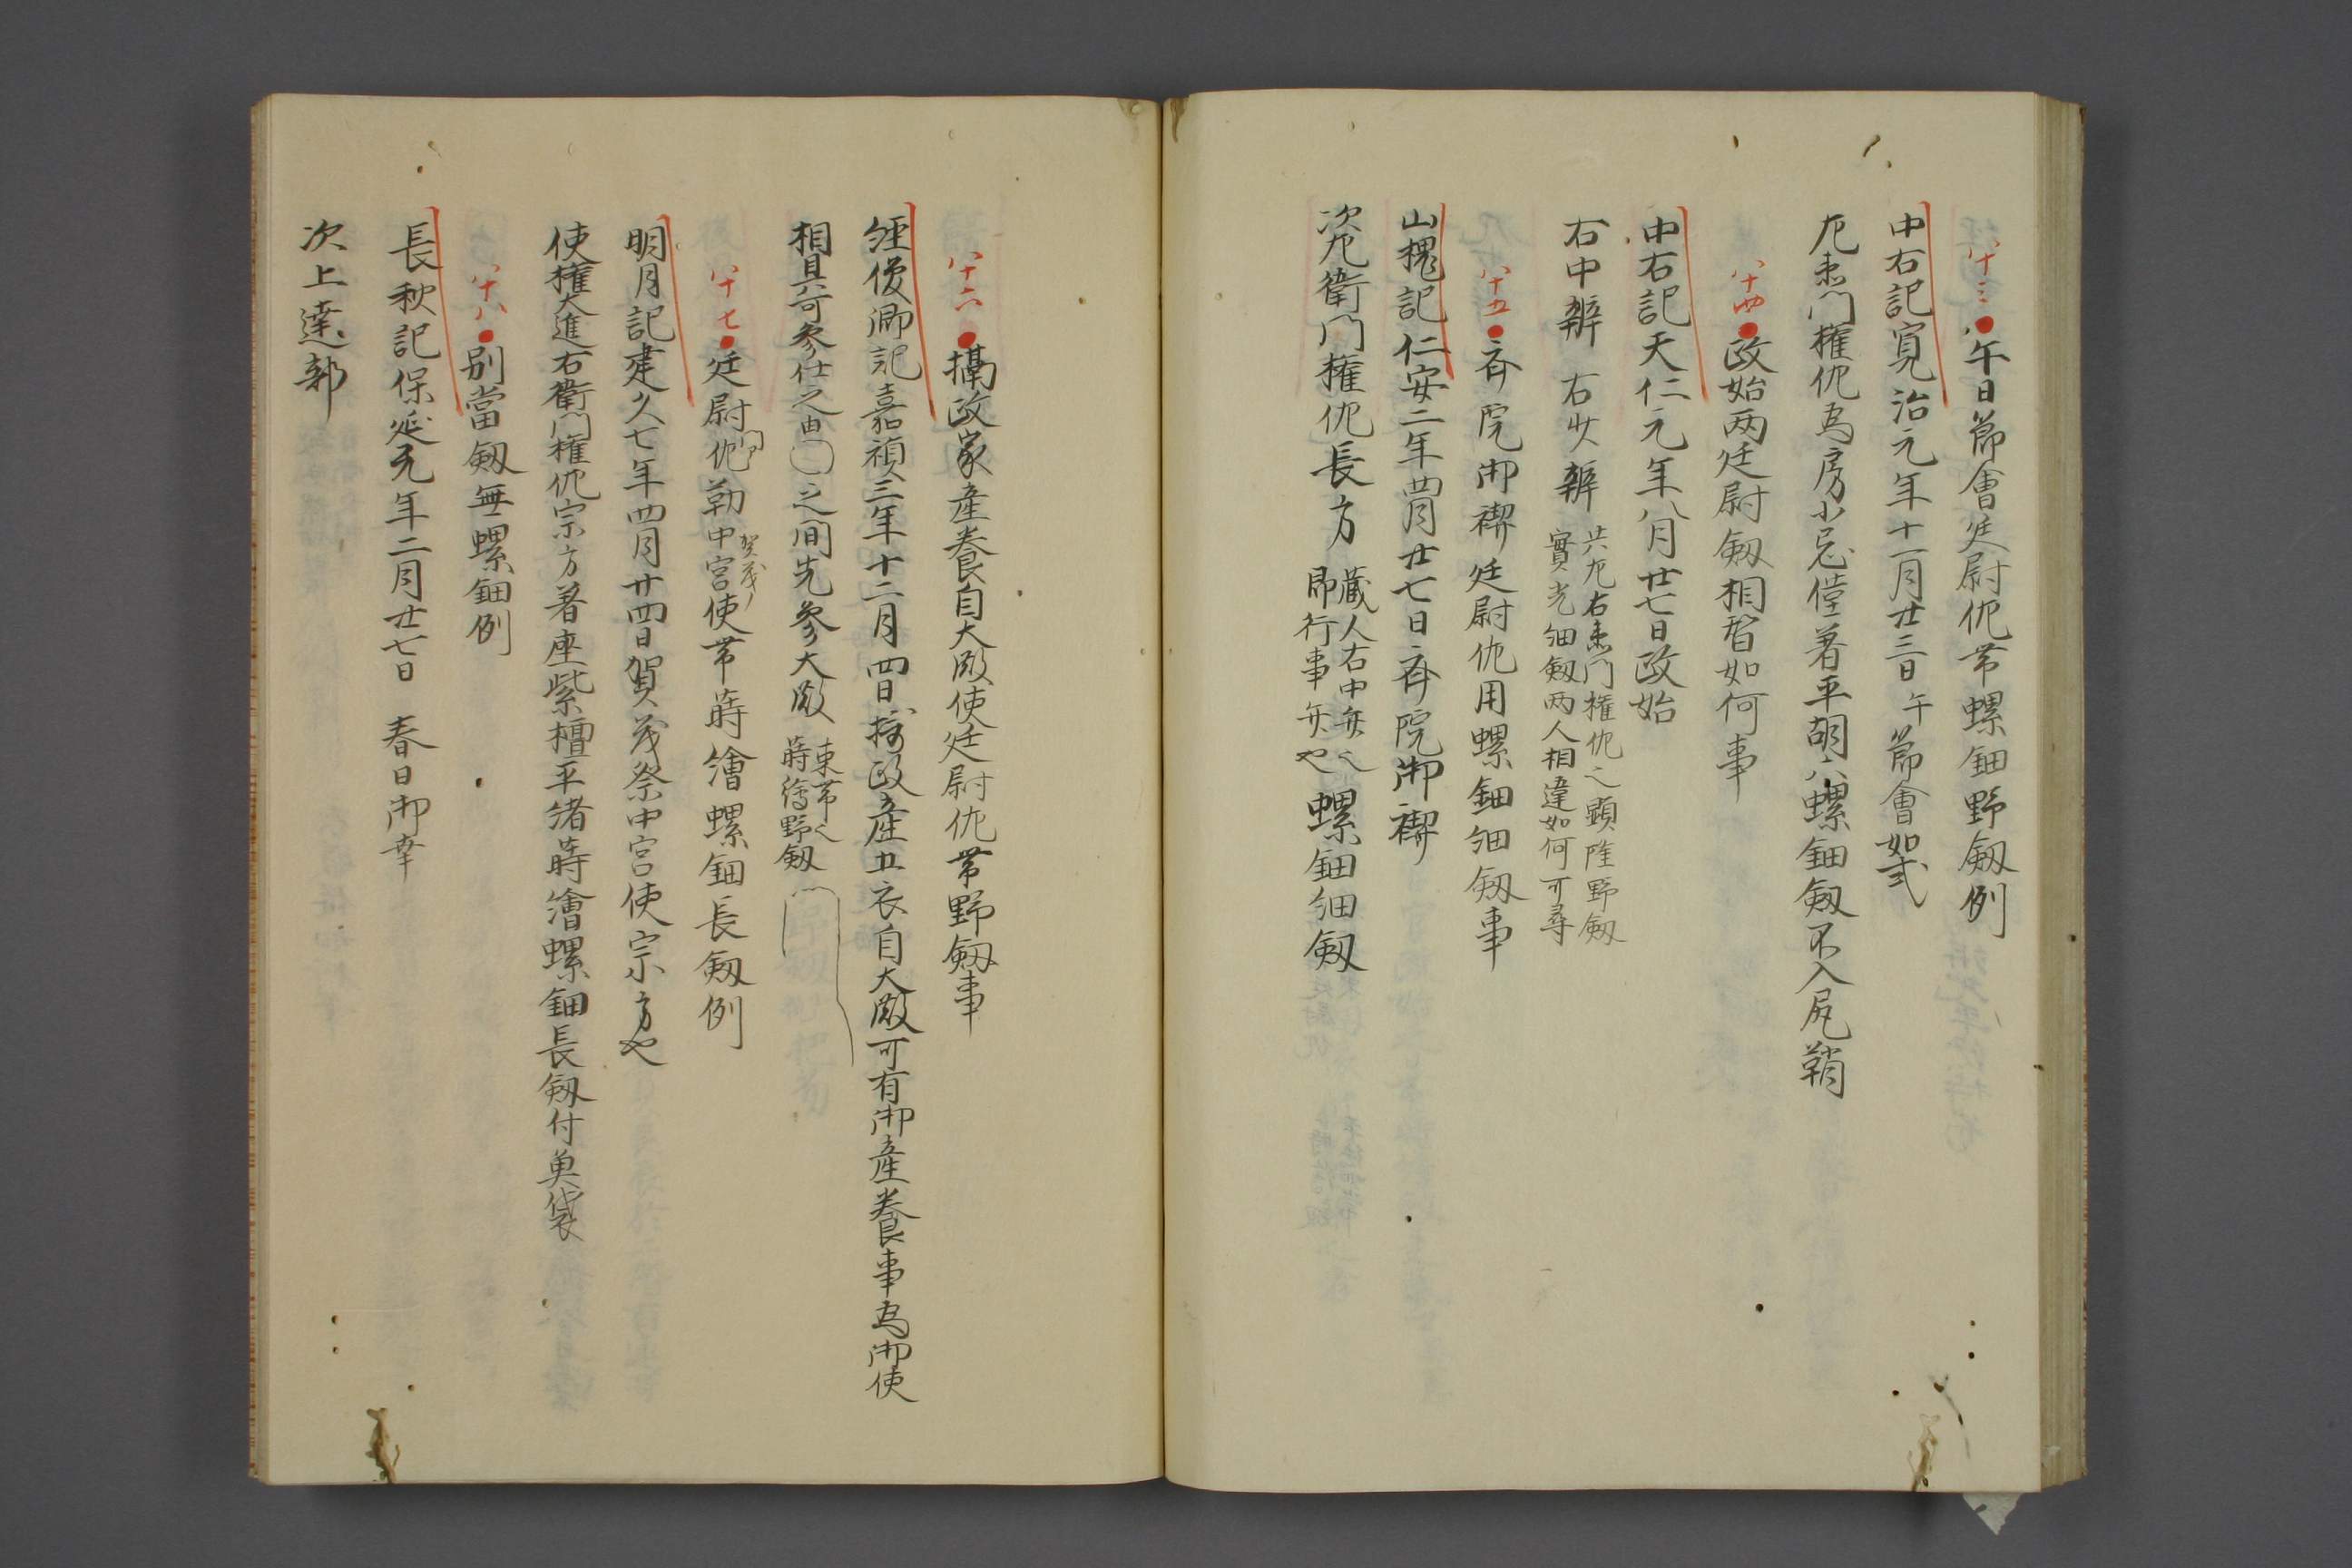 八十三●午日節會廷尉佐帯螺鈿野劔例
中右記寛治元年十一月廿三日午節會如式
左衛門権佐為房小忌僅著平胡六螺鈿劔不入尻鞘
八十四●政始両廷尉劔相替如何事
中右記天仁元年八月廿七日政始
右中辨 右少辨 共左右衛門権佐之顕隆野劔
實光細劔両人相違如何可尋
八十五●斎院御禊廷尉佐用螺鈿細劔事
山槐記仁安二年四月廿七日斎院御禊
次左衛門権佐長方 蔵人右中弁也
即行事弁也 螺鈿細劔
八十六●摂政家産養自大殿使廷尉佐帯野劔事
経俊卿記嘉禎三年十二月四日摂政産五衣自大殿可有御産養事為御使
相具可参仕之由 之間先参大殿 束帯之
蒔絵野劔
八十七●廷尉佐勤中宮使帯蒔繪螺鈿長劔例
賀茂
明月記建久七年四月廿四日賀茂祭中宮使宗方也
使権大進右衛門権佐宗方著座紫檀平緒蒔繪螺鈿長劔付魚袋
八十八●別當劔無螺鈿例
長秋記保延元年二月廿七日 春日御幸
次上達部